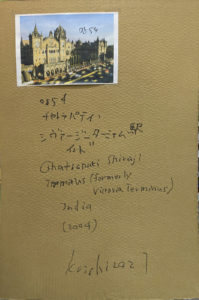 0354
0354
チャトラパティ・
シヴァージー・ターミナス駅
インド
(Chatrapati Shivaji
Terminus (formerly
Victoria Terminus)
India
(2004)